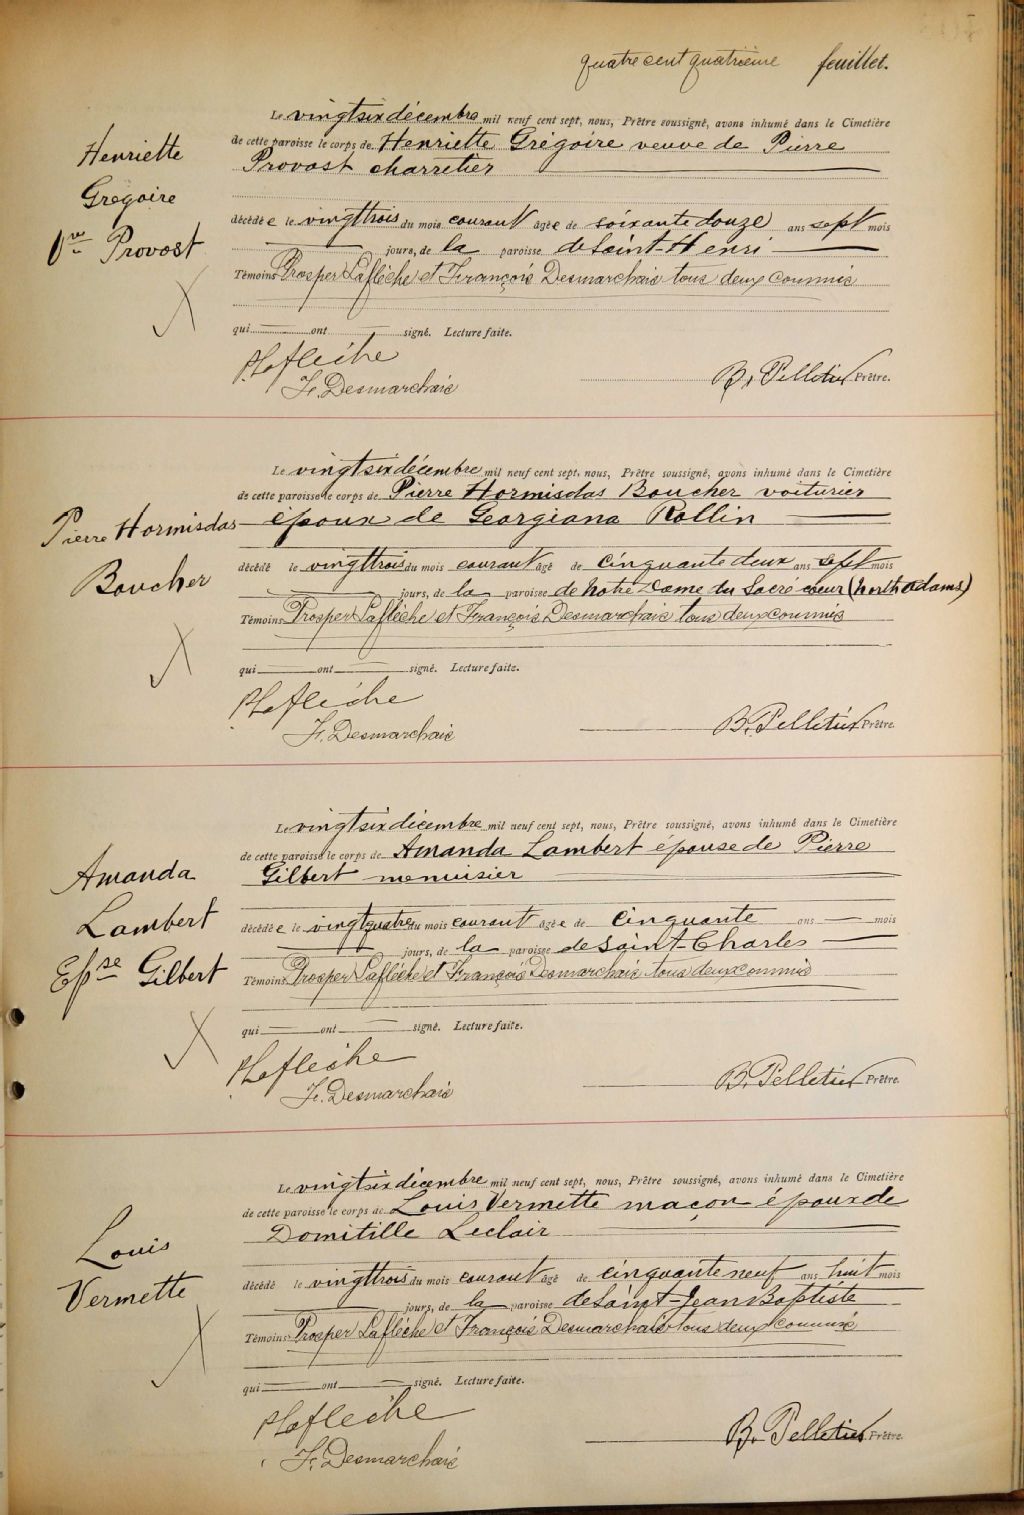 quatre cent quatrième feuillet.
Henriette
Grégoire
Vve Provost
Le vingtsix décembre mil neuf cent sept, nous, Prêtre soussigné, avons inhumé dans le Cimetière
de cette paroisse le corps de Henriette Grégoire veuve de Pierre
Provost charretier
décédée le vingttrois du mois courant âgée de soixante douze ans sept mois
jours, de la paroisse de Saint-Henri
Témoins Prosper Laflèche et François Desmarchais tous deux commis
qui ont signé. Lecture faite.
P Laflèche
F. Desmarchais
B. Pelletier Prêtre.
Pierre Hormisdas
Boucher
Le vingtsix décembre mil neuf cent sept, nous, Prêtre soussigné, avons inhumé dans le Cimetière
de cette paroisse le corps de Pierre Hormisdas Boucher voiturier
époux de Georgiana Rollin
décédé le vingttrois du mois courant âgé de cinquante deux ans sept mois
jours, de la paroisse de Notre Dame du Sacré coeur (North adams)
Témoins Prosper Laflèche et François Desmarchais tous deux commis
qui ont signé. Lecture faite.
P Laflèche
F. Desmarchais
B. Pelletier Prêtre.
Amanda
Lambert
Epse Gilbert
Le vingtsix décembre mil neuf cent sept, nous, Prêtre soussigné, avons inhumé dans le Cimetière
de cette paroisse le corps de Amanda Lambert épouse de Pierre
Gilbert menuisier
décédée le vingtquatre du mois courant âgée de cinquante ans mois
jours, de la paroisse de Saint-Charles
Témoins Prosper Laflèche et François Desmarchais tous deux commis
qui ont signé. Lecture faite.
P Laflèche
F. Desmarchais
B. Pelletier Prêtre.
Louis
Vermette
Le vingtsix décembre mil neuf cent sept, nous, Prêtre soussigné, avons inhumé dans le Cimetière
de cette paroisse le corps de Louis Vermette maçon époux de
Domitille Leclair
décédé le vingttrois du mois courant âgé de cinquante neuf ans huit mois
jours, de la paroisse de Saint-Jean Baptiste
Témoins Prosper Laflèche et François Desmarchais tous deux commis
qui ont signé. Lecture faite.
P Laflèche
F. Desmarchais
B. Pelletier Prêtre.